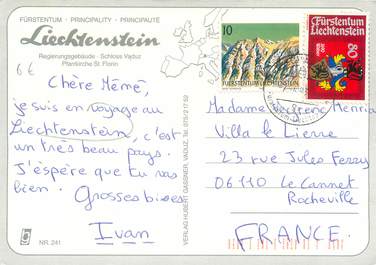 FÜRSTENTUM · PRINCIPALITY · PRINCIPAUTÉ
Liechtenstein
Regierungsgebäude · Schloss Vaduz
Pfarrkirche St. Florin
6€
Chère Mémé,
je suis en voyage au
Liechtenstein, c'est
un très beau pays.
J'espère que tu vas
bien. Grosses bises
Ivan
NR. 241
VERLAG HUBERT GASSNER, VADUZ, Tel. 075/2 17 52
10
FÜRSTENTUM LIECHTENSTEIN
Fürstentum
Liechtenstein
80
Madame Henri
Villa le Lierre
23 rue Jules Ferry
06110 Le Cannet
Rocheville
FRANCE